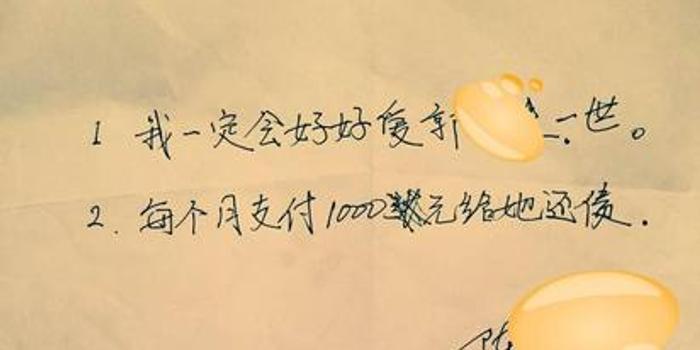 1 我一定会好好爱 一世。
2. 每个月支付1000元给她还债.
陈